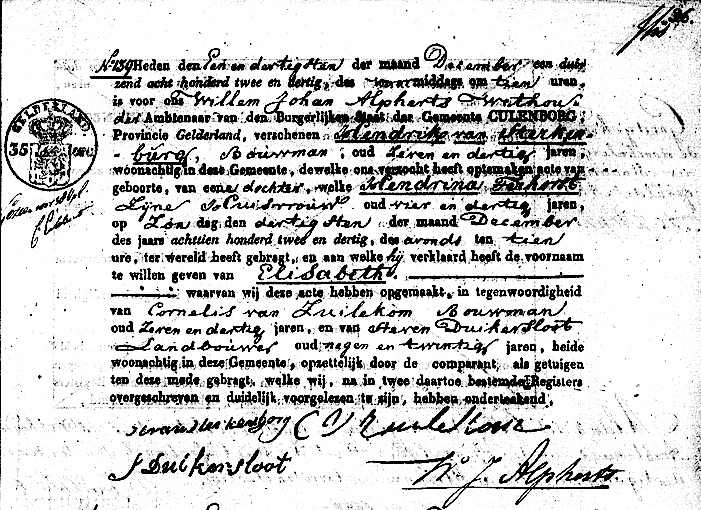 N.º 139 Heden den Een en dertigsten der maand December een dui-
zend acht honderd twee en dertig, des voormiddags om tien uren,
is voor ons Willem Johan Alpherts Wethou-
der Ambtenaar van den Burgerlijken Staat der Gemeente CULENBORG
Provincie Gelderland, verschenen Hendrik van Sterken-
burg, Bouwman, oud Zeven en dertig jaren,
woonachtig in deze Gemeente, dewelke ons verzocht heeft optemaken acte van
geboorte, van eene dochter, welke Hendrina Terhorst
Zijne Huisvrouw oud vier en dertig jaren,
op Zon dag den dertigsten der maand December
des jaars achttien honderd twee en dertig, des avonds ten tien
ure, ter wereld heeft gebragt, en aan welke hij verklaard heeft de voornaam
te willen geven van Elisabeth.
waarvan wij deze acte hebben opgemaakt, in tegenwoordigheid
van Cornelis van Zuilekom Bouwman
oud Zeven en dertig jaren, en van Steven Duikersloot
Landbouwer oud negen en twintig jaren, beide
woonachtig in deze Gemeente, opzettelijk door de comparant, als getuigen
ten deze mede gebragt, welke wij, na in twee daartoe bestemde Registers
overgeschreven en duidelijk voorgelezen te zijn, hebben onderteekend,
GELDERLAND
35
S Duikersloot
W. J. Alpherts